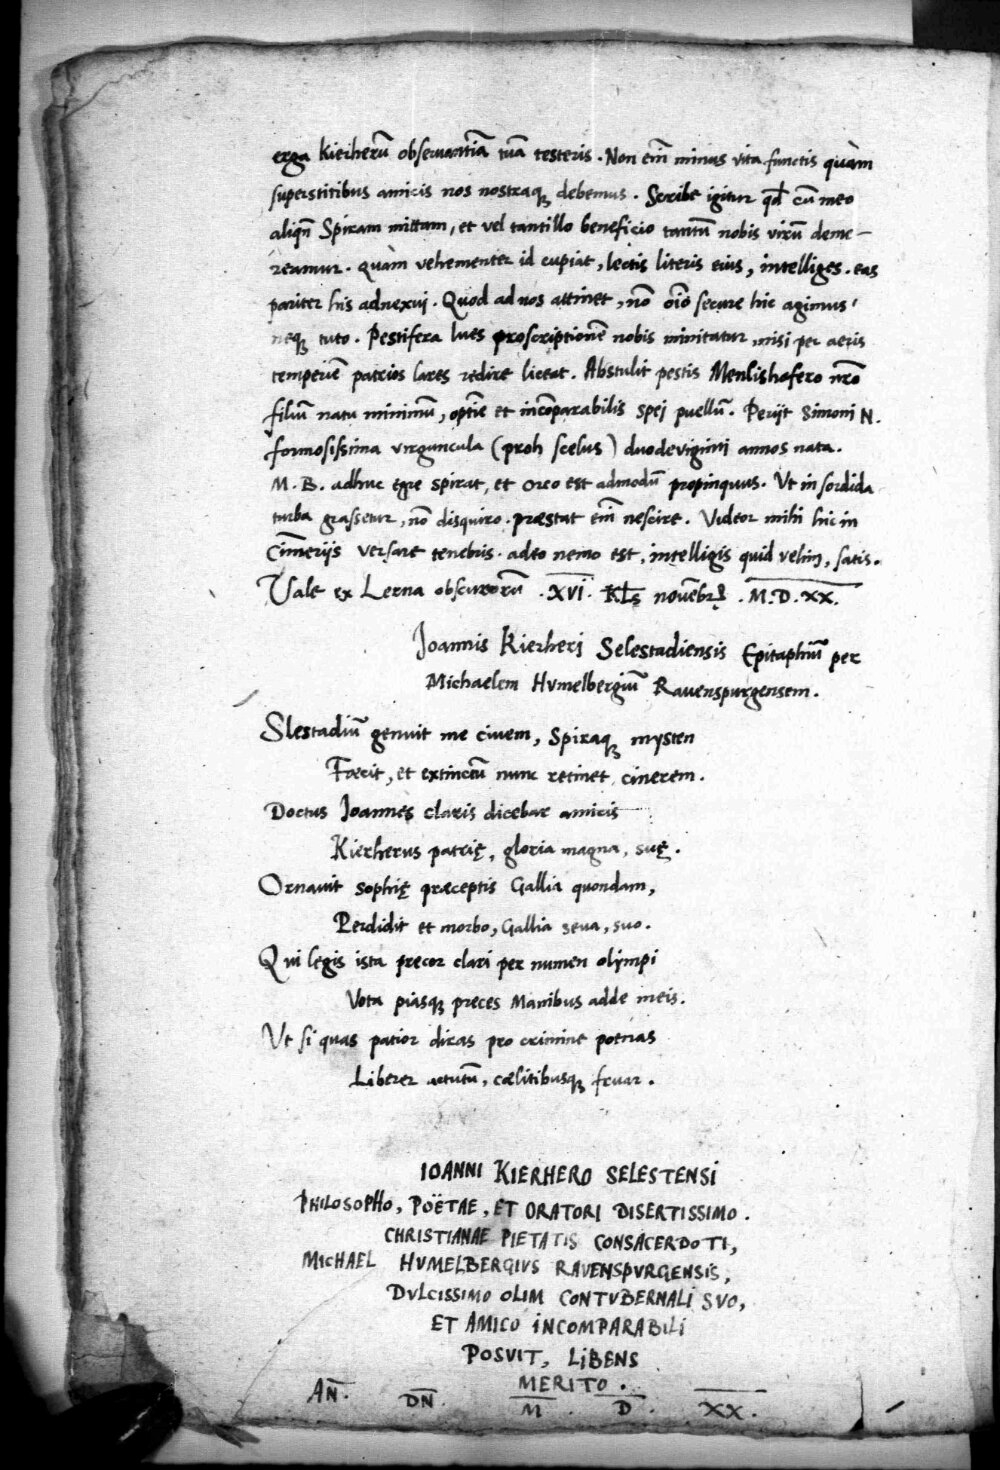 erga Kierherū obseruantiā tuā testeris. Non em̄ minus vita functis quàm
superstitibus amicis nos nostraqꝫ debemus. Scribe igitur qđ cū meo
aliqn̄ Spiram mittam, et vel tantillo beneficio tantū nobis virū deme-
reamur. Quàm vehementer id cupiat, lectis literis eius, intelliges. eas
pariter his adnexui. Quod ad nos attinet, nō oīō secure hic agimus,
neqꝫ tuto. Pestifera lues proscriptionē nobis minitatur, nisi per aeris
temperiē patrios lares redire liceat. Abstulit pestis Menlishofero nrō
filiū natu minimū, optīe et incōparabilis spej puellū. Perijt Simoni N.
formosissima virguncula (proh scelus) duodeviginti annos nata.
M. B. adhuc ęgre spirat, et Orco est admodū propinquus. Vt in sordida
turba grassetur, nō disquiro. præstat em̄ nescire. Videor mihi hic in
Cīmerijs versare tenebris. adeo nemo est, intelligis quid velim, satis.
Vale ex Lerna obscurorū .XVI. Kl̄s nouēbrꝭ .M.D.XX.
Joannis Kierherj Selestadiensis Epitaphiū per
Michaelem Hvmelbergiū Ravenspurgensem.
Slestadiū genuit me ciuem, Spiraqꝫ mysten
Fœcit, et extinctū nunc retinet cinerem.
Doctus Joannes claris dicebar amicis
Kierherus patrię, gloria magna, suę.
Ornauit sophię præceptis Gallia quondam,
Perdidit et morbo, Gallia seua, suo.
Qui legis ista precor clari per numen olympi
Vota piasqꝫ preces Manibus adde meis.
Vt si quas patior diras pro crimine poenas
Liberer actutū, cœlitibusqꝫ fruar.
IOANNI KIERHERO SELESTENSI
PHILOSOPHO, POËTAE, ET ORATORI DISERTISSIMO.
CHRISTIANAE PIETATIS CONSACERDOTI,
MICHAEL HVMELBERGIVS RAVENSPVRGENSIS,
DVLCISSIMO OLIM CONTVBERNALI SVO,
ET AMICO INCOMPARABILI
POSVIT, LIBENS
MERITO.
AN̄. DN̄. M. D. XX.